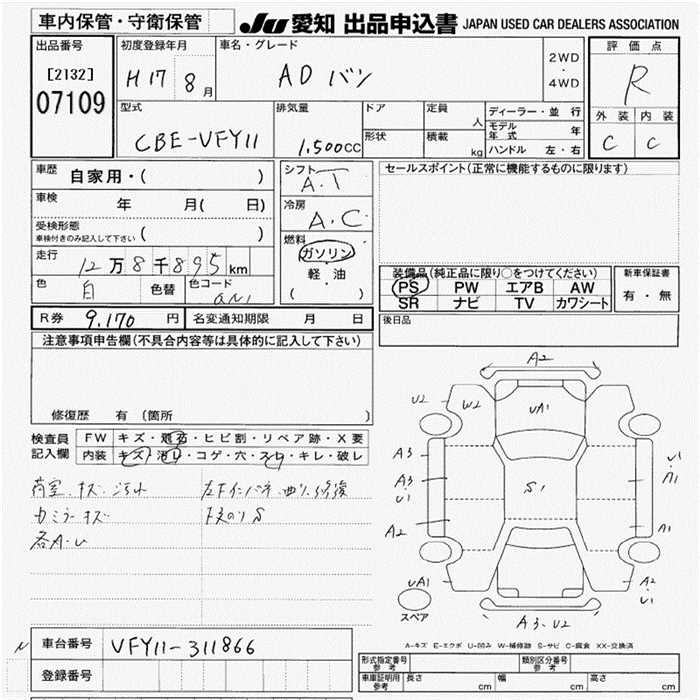 車内保管・守衛保管
JU 愛知 出品申込書 JAPAN USED CAR DEALERS ASSOCIATION
出品番号
[2132]
07109
初度登録年月
H 17 8 月
車名・グレード
AD バン
2WD
・
4WD
評価点
R
外装 内装
C C
型式
CBE-VFY11
排気量
1,500cc
ドア
形状
定員
人
積載
kg
ディーラー・並行
モデル年式 年
ハンドル 左・右
車歴
自家用・( )
車検
年 月( 日)
受検形態
車検付きのみ記入して下さい ( )
走行
12万8千895km
色
白
色替
色コード
シフト
A.T
冷房
A.C
燃料
ガソリン
軽・油
( )
セールスポイント(正常に機能するものに限ります)
装備品(純正品に限り○をつけてください)
PS PW エアB AW
SR ナビ TV カワシート
新車保証書
有・無
R券 9,170 円
名変通知期限 月 日
後日品
注意事項申告欄(不具合内容等は具体的に記入して下さい)
修復歴 有 (箇所 )
検査員記入欄
FW キズ・飛石・ヒビ割・リペア跡・X要
内装 キズ・汚れ・コゲ・穴・スレ・キレ・破レ
荷室.キズ.汚れ
カミラーキズ
各A.U
A2
U2
W2
UA1
A3
A3
U1
A2
S1
U1
A1
A1
UA1
A2
U1
A3.U2
スペア
A-キズ E-エクボ U-凹み W-補修跡 S-サビ C-腐食 XX-交換済
N
車台番号 VFY11-311866
登録番号
形式指定番号
参考
類別区分番号
参考
車庫証明用
参考
長さ cm
幅 cm
高さ cm